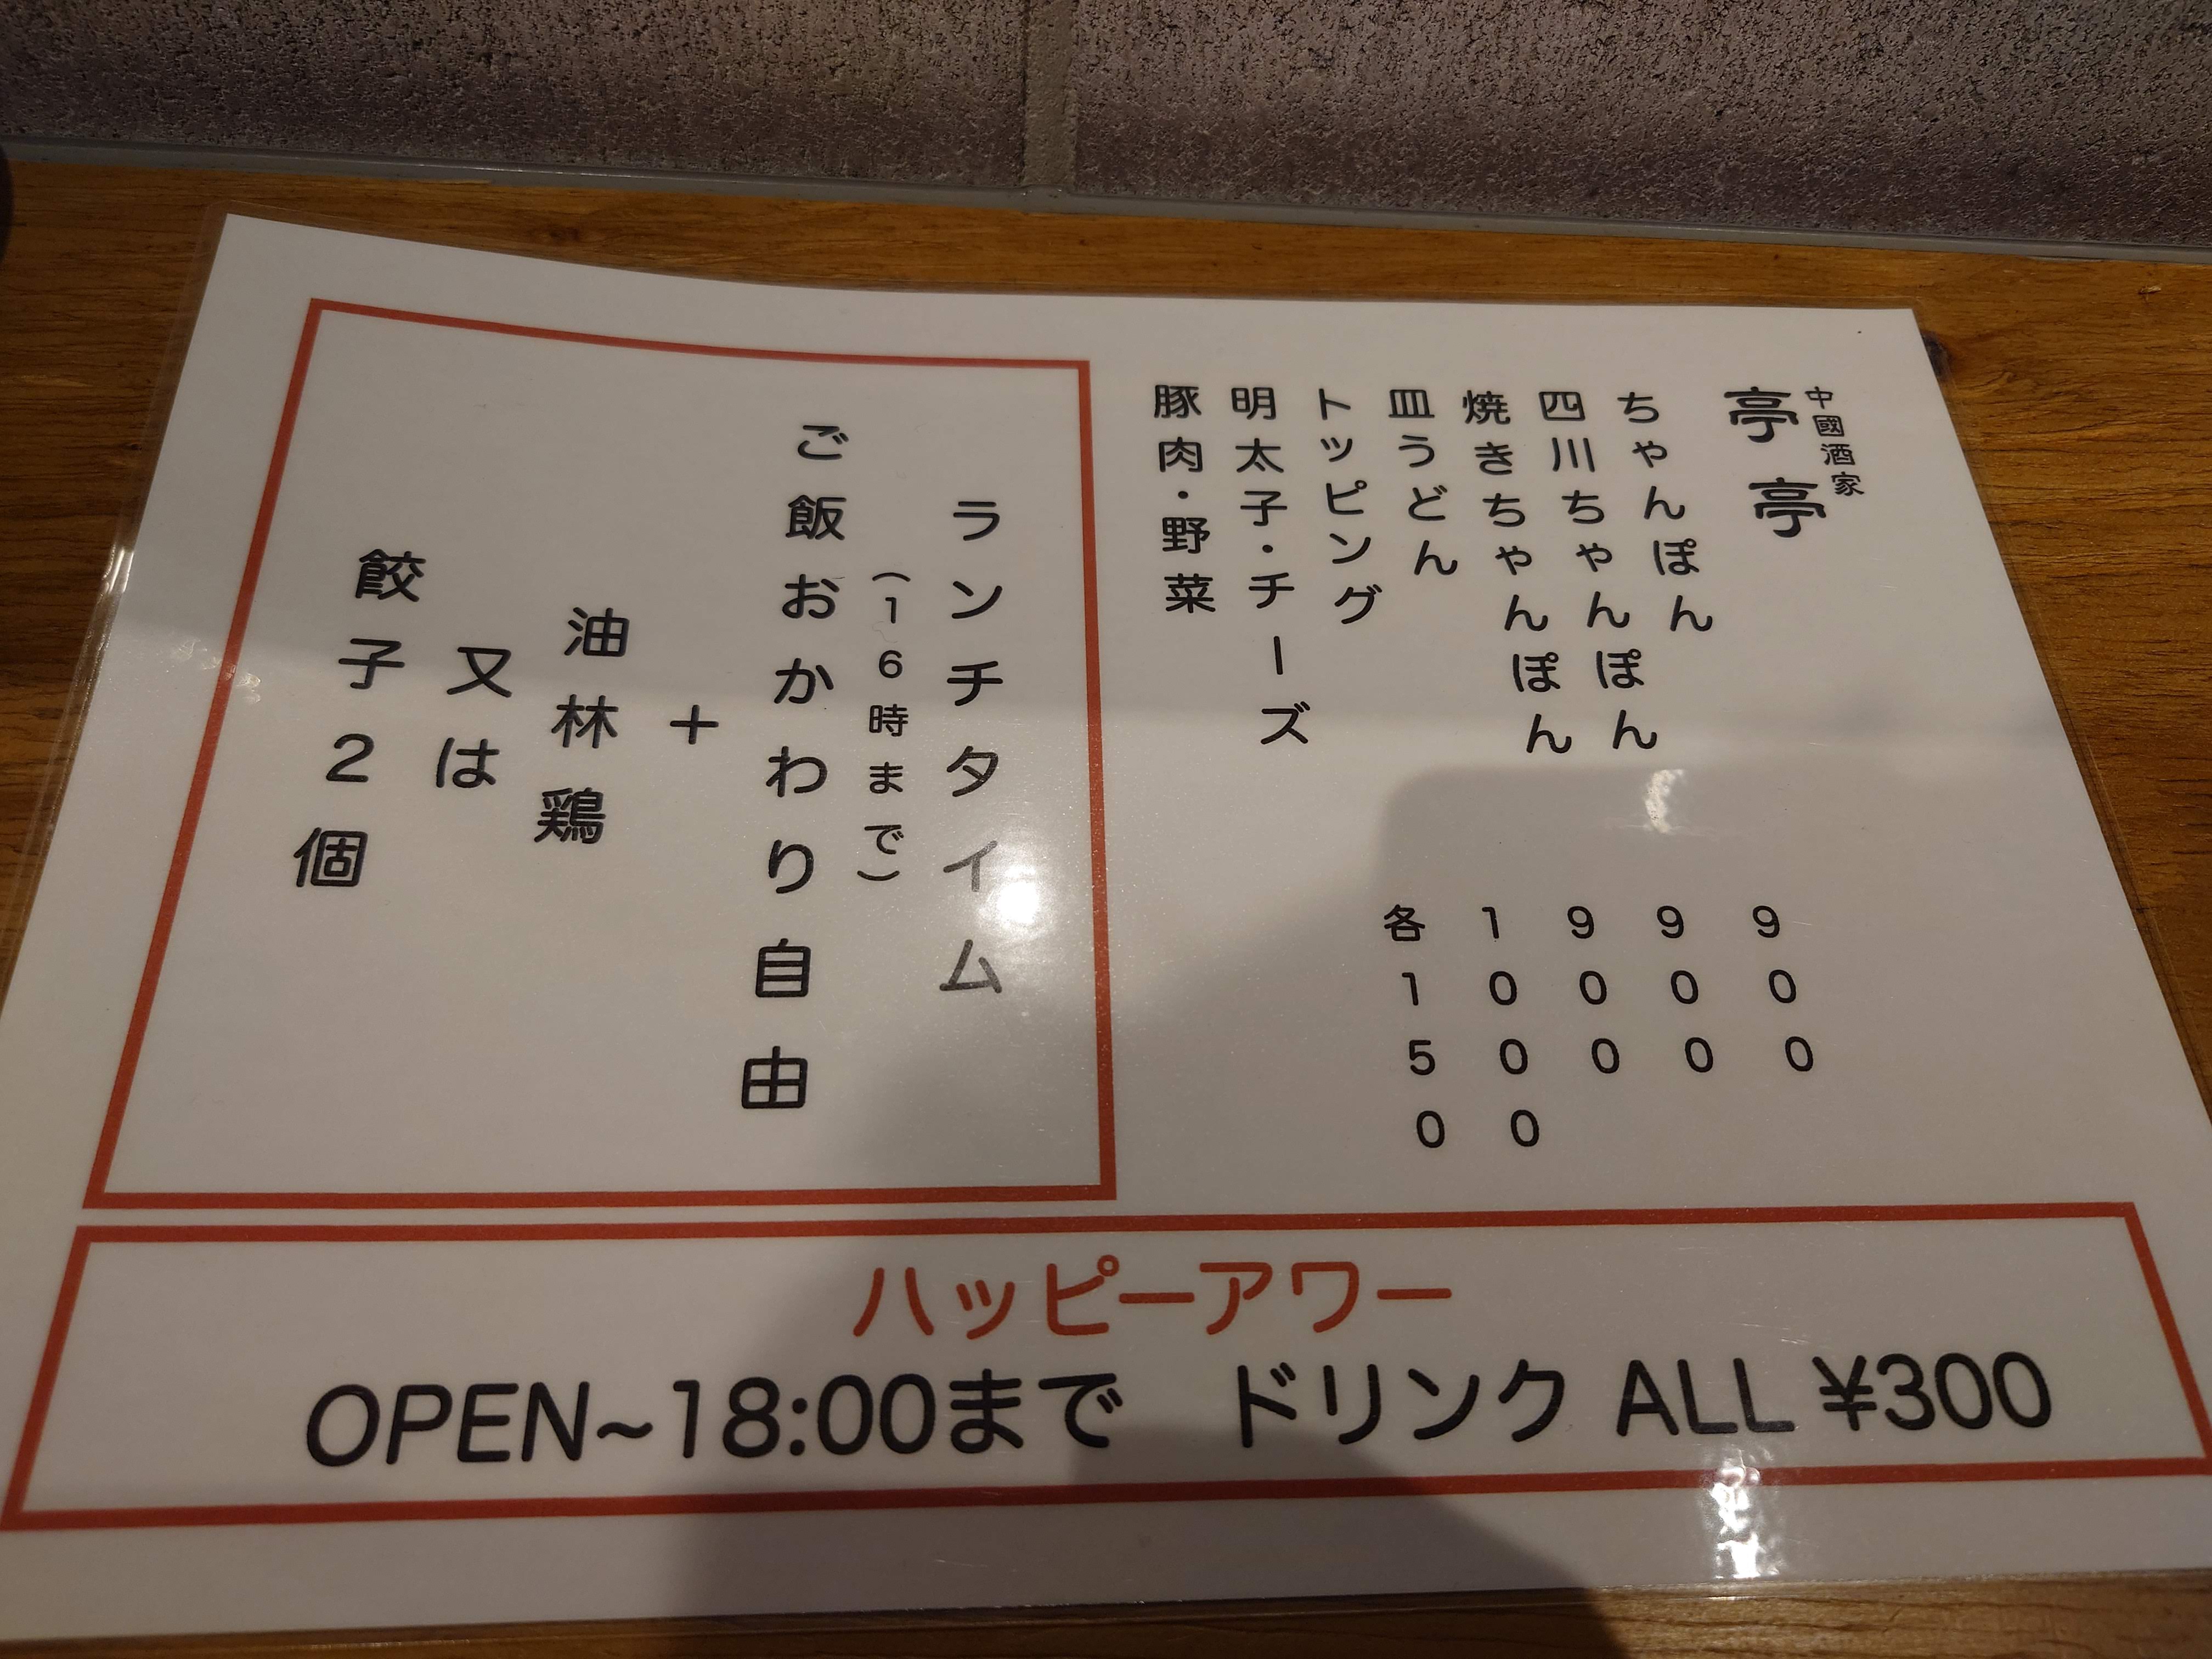 中國酒家
亭亭
ちゃんぽん 900
四川ちゃんぽん 900
焼きちゃんぽん 900
皿うどん 1000
トッピング 各150
明太子・チーズ
豚肉・野菜
ランチタイム
(16時まで)
ご飯おかわり自由
+
油林鶏
又は
餃子2個
ハッピーアワー
OPEN~18:00まで ドリンク ALL ¥300